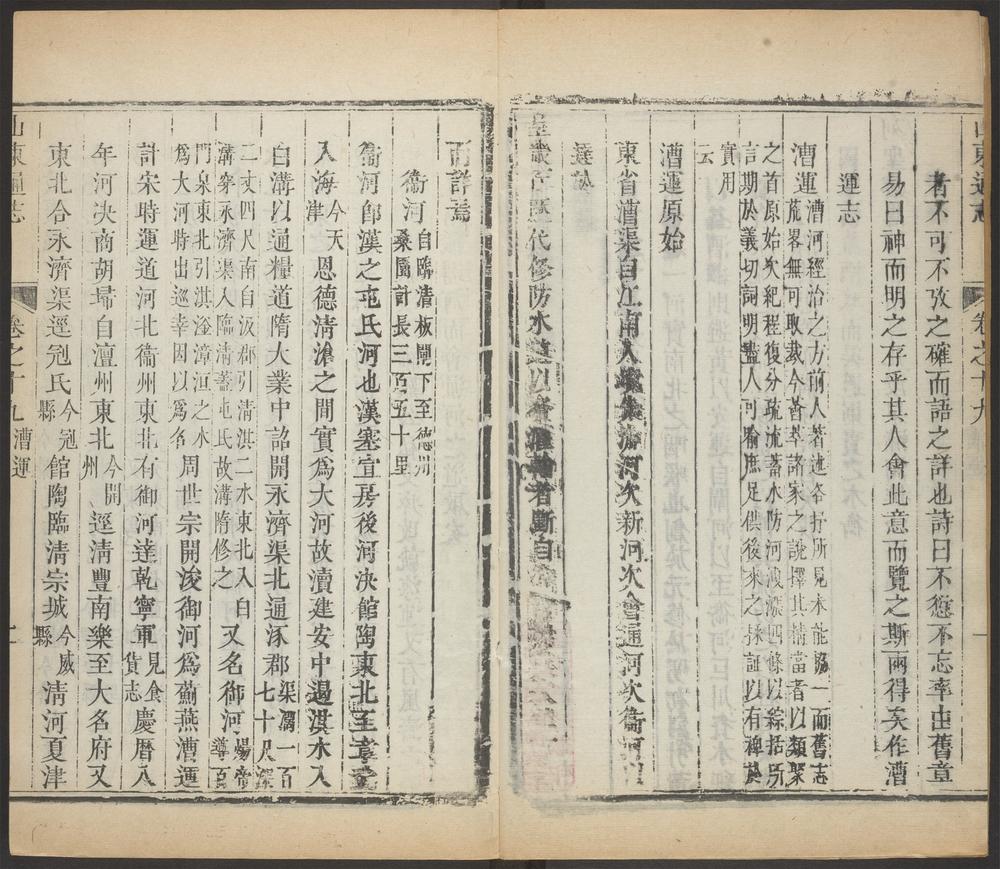 山東通志
卷之十九
一
者不可不攷之確而語之詳也詩曰不愆不忘率由舊章
易曰神而明之存乎其人會此意而覽之斯兩得矣作漕
運志
漕運
漕河經治之方前人著述各抒所見未能協一而舊志
荒畧無可取裁今薈萃諸家之說擇其精當者以類聚
之首原始次紀程復分疏流蓄水防河濬淤四條以綜括所
言期於義切詞明覽人可喻庶足供後來之採証以有裨於
實用
云
漕運原始
東省漕渠自江南入
河次新河次會通河次衛河
歷
代修防水
以
者斷自
而詳焉
衛河
自臨清板閘下至德州
桑園計長三百五十里
衞河卽漢之屯氏河也漢塞宣房後河決館陶東北至章武
入海
今天
津
恩德清滄之間實爲大河故瀆建安中遏淇水入
白溝以通糧道隋大業中詔開永濟渠北通涿郡
渠濶一百
七十尺深
二丈四尺南自汲郡引清淇二水東北入白
溝穿永濟渠入臨清蓋屯氏故溝隋修之
又名御河
煬帝
導百
門泉東北引淇淦漳洹之水
爲大河時出巡幸因以爲名
周世宗開浚御河爲薊燕漕運
計宋時運道河北衞州東北有御河達乾寧軍
見食
貨志
慶曆八
年河决商胡埽自澶州東北
今開
州
逕清豐南樂至大名府又
東北合永濟渠逕冠氏
今冠
縣
館陶臨清宗城
今威
縣
清河夏津
山東通志
卷之十九
漕運
二